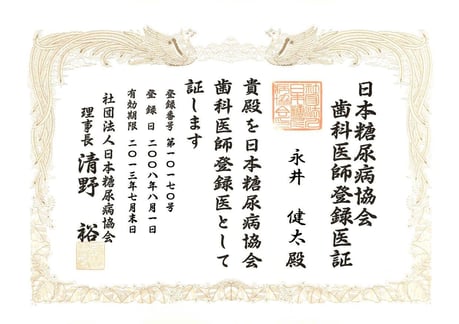 日本糖尿病協会
歯科医師登録医証
永井 健太殿
貴殿を日本糖尿病協会
歯科医師登録医として
証します
登録番号 第一〇一七〇号
登録日 二〇〇八年八月一日
有効期限 二〇一三年七月末日
社団法人日本糖尿病協会
理事長 清野 裕